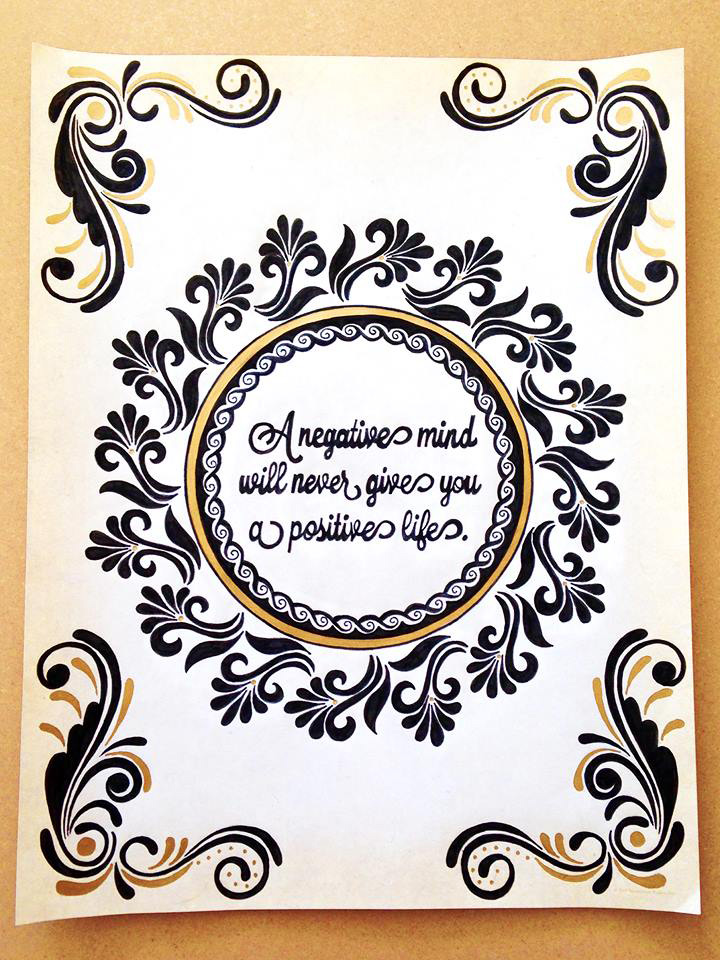 A negative mind
will never give you
a positive life.